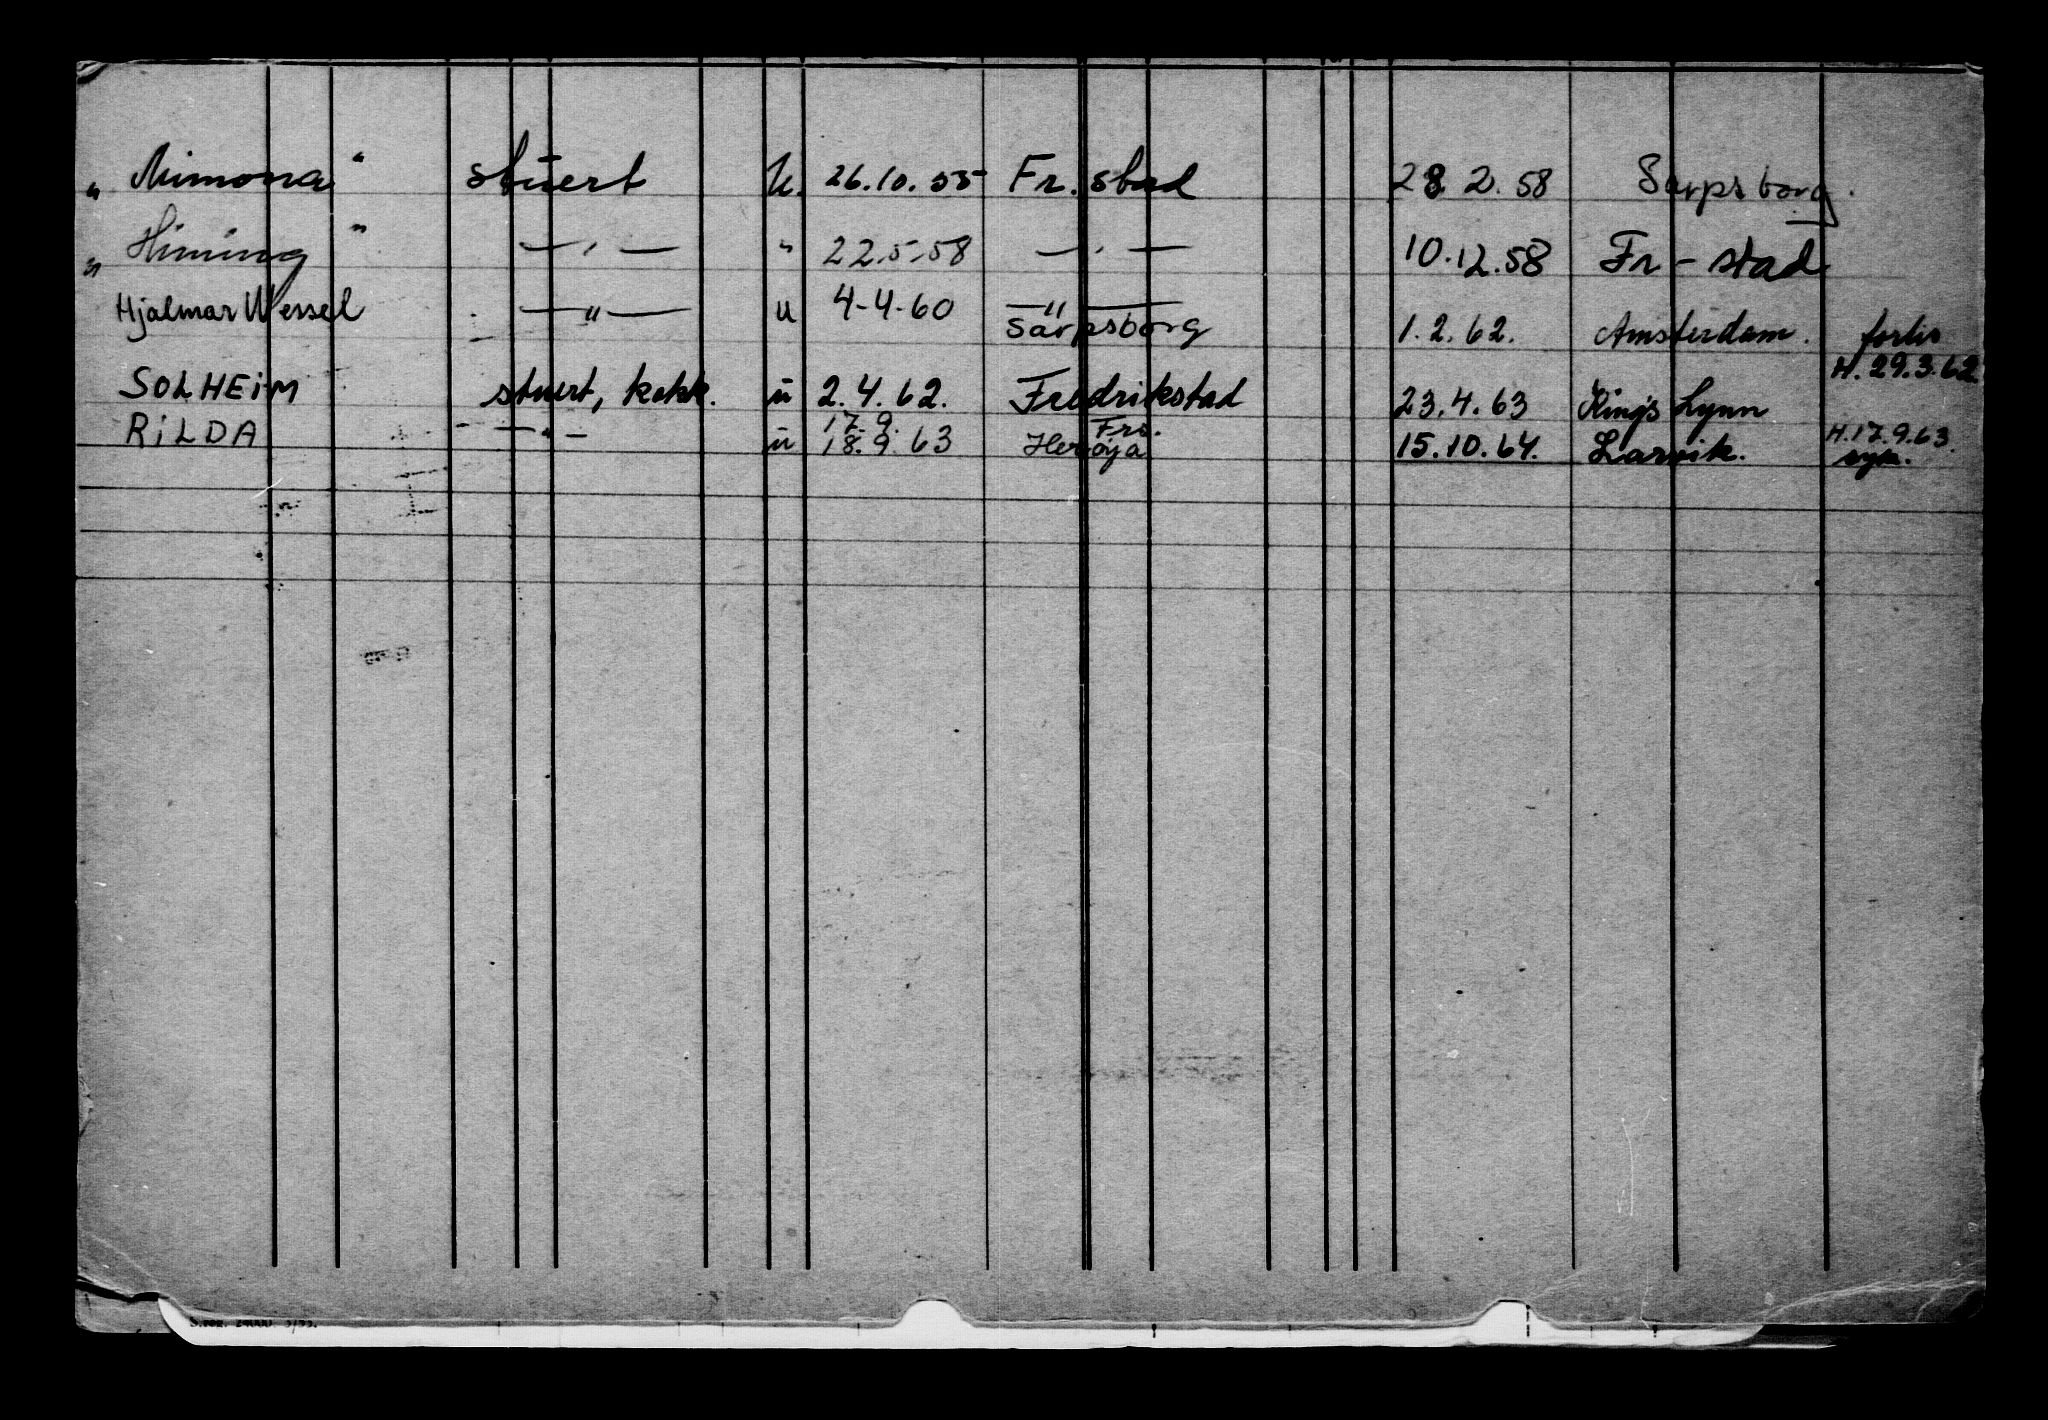 „ Mimona “ stuert u. 26.10.55 Fr.stad 28.2.58 Sarpsborg.
„ Himing “ —„— „ 22.5-58 —„— 10.12.58 Fr-stad
Hjalmar Wessel —„— u 4-4-60 —„—
Sarpsborg 1.2.62. Amsterdam. forlis
H. 29.3.62
SOLHEiM stuert, kokk. u 2.4.62. Fredrikstad 23.4.63 Kings Lynn
17.9. Frs.
RiLDA —„— u 18.9.63 Herøya 15.10.64. Larvik. H.17.9.63.
syk.